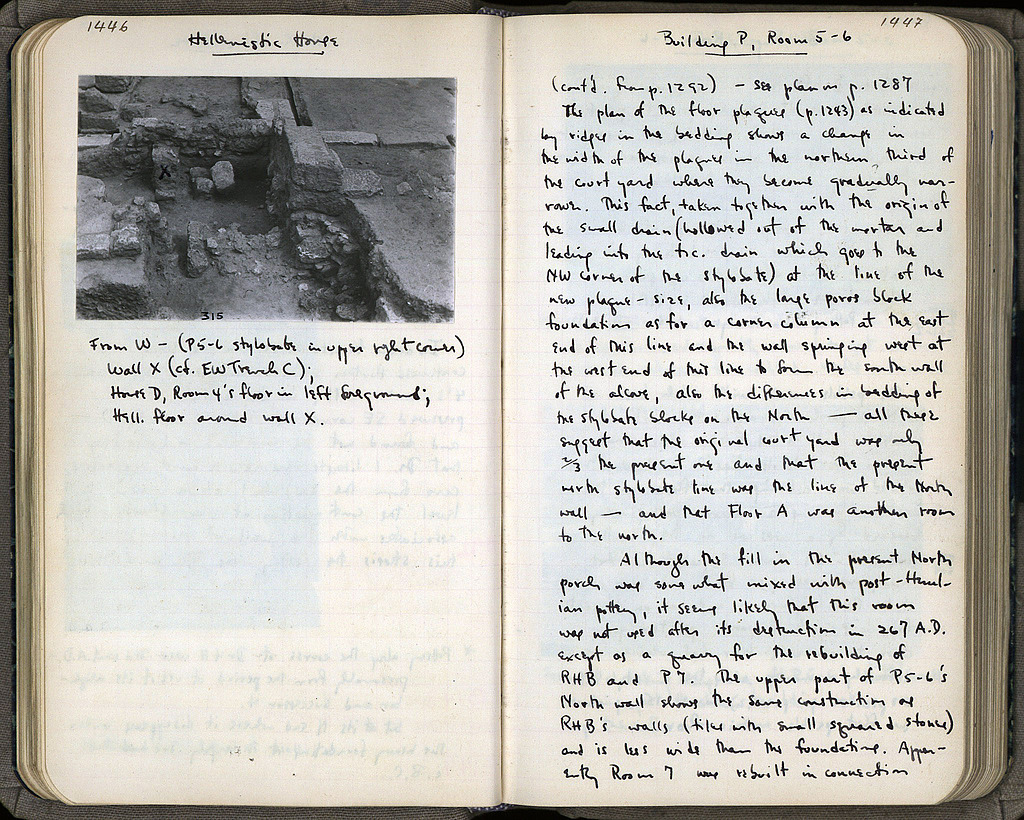 1446
Hellenistic House
X
315
From W - (P5-6 stylobate in upper right corner)
Wall X (cf. EW Trench C);
House D, Room 4's floor in left foreground;
Hell. floor around wall X.
1447
Building P, Room 5-6
(cont'd. from p. 1292) - see plan on p. 1287
The plan of the floor plaques (p. 1243) as indicated
by ridges in the bedding shows a change in
the width of the plaques in the northern third of
the court yard where they become gradually nar-
rower. This fact, taken together with the origin of
the small drain (hollowed out of the mortar and
leading into the t.c. drain which goes to the
NW corner of the stylobate) at the line of the
new plaque-size, also the large poros block
foundation as for a corner column at the east
end of this line and the wall springing west at
the west end of this line to form the south wall
of the alcove, also the differences in bedding of
the stylobate blocks on the North — all these
suggest that the original court yard was only
2/3 the present one and that the present
north stylobate line was the line of the North
wall — and that Floor A was another room
to the north.
Although the fill in the present North
porch was somewhat mixed with post-Herul-
ian pottery, it seems likely that this room
was not used after its destruction in 267 A.D.
except as a quarry for the rebuilding of
RHB and P7. The upper part of P5-6's
North wall shows the same construction as
RHB's walls (tiles with small squared stones)
and is less wide than the foundation. Appar-
ently Room 7 was rebuilt in connection